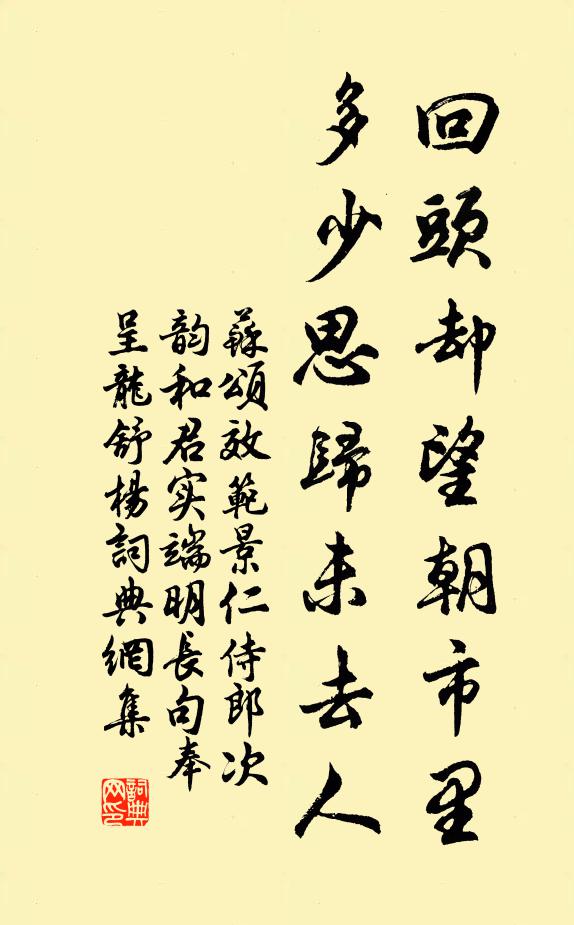 回頭却望朝市里
多少思歸未去人
蘇頌效範景仁侍郎次
韵和君实端明長句奉
呈龍舒楊詞典網集
詞典网印